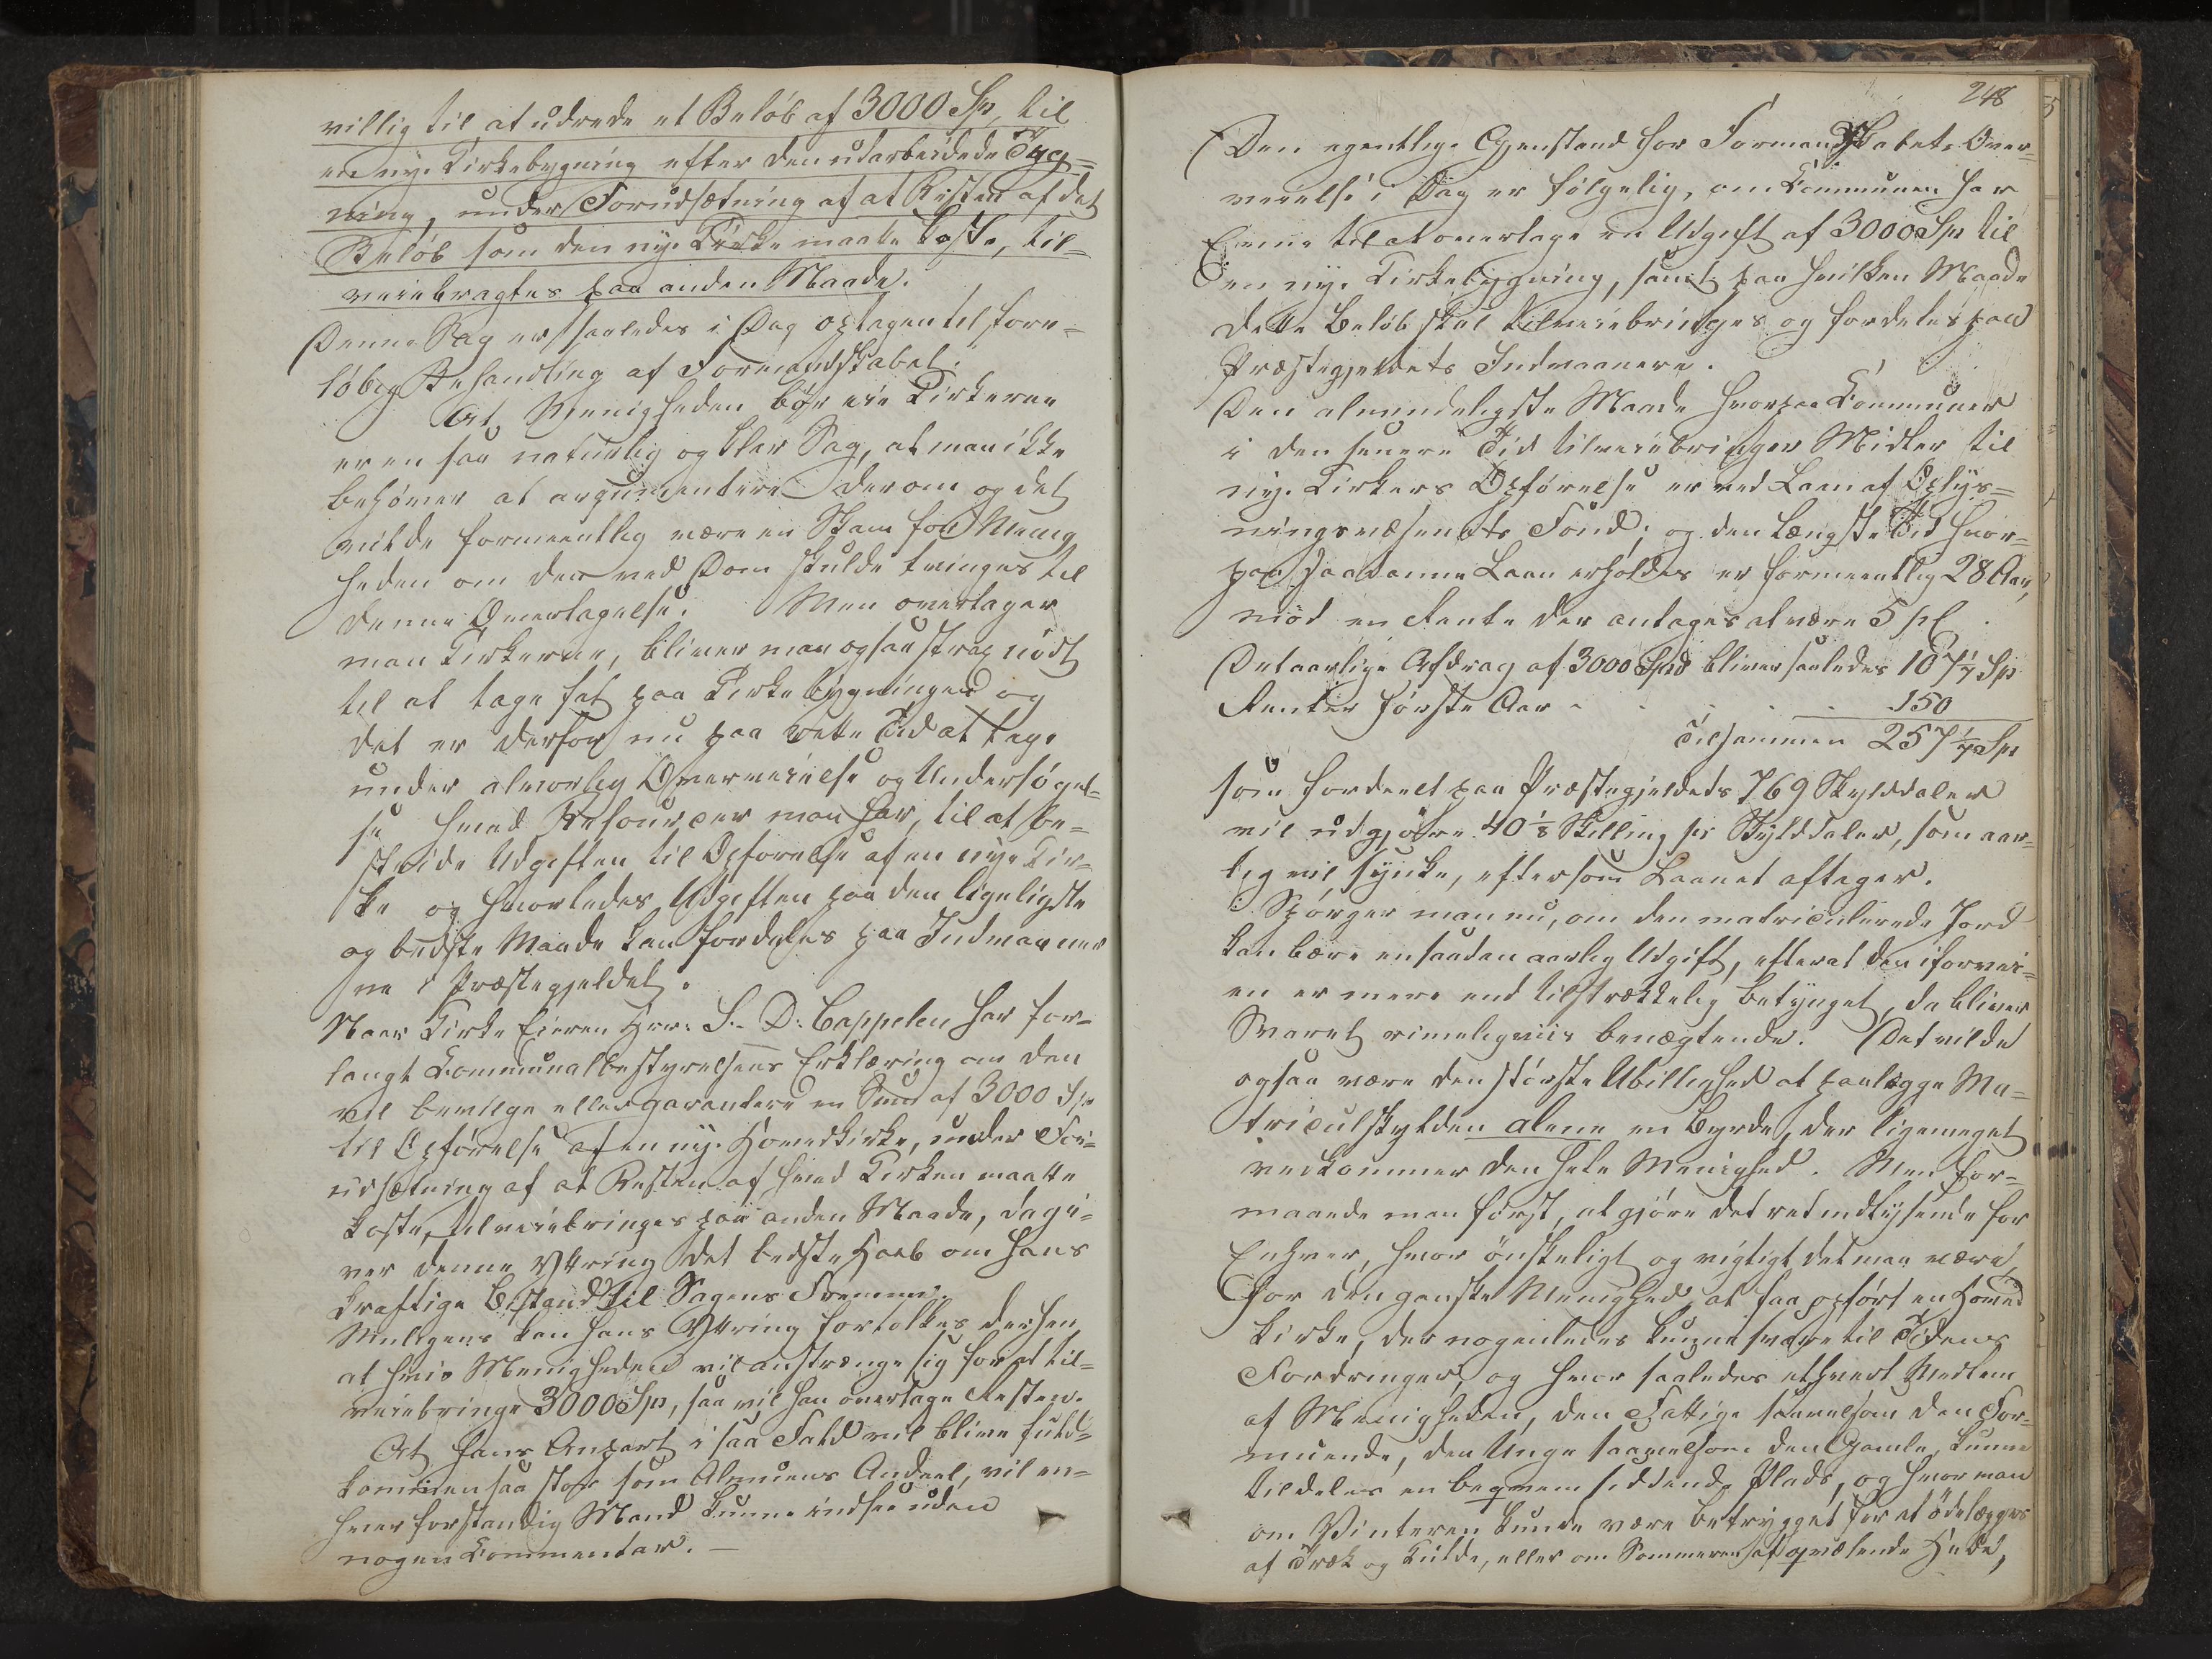 villig til at udrede et Beløb af 3000 Sp, til
en nye Kirkebygning efter den udarbeidede Teg=
ning, under Forudsætning af at Resten af det
Beløb som den nye Kirke maatte koste, til=
veiebragtes paa anden Maade.
Denne Sag er saaledes i Dag optagen til fore=
løbig Behandling af Formandskabet.
At Menigheden bør eie Kirkerne
er en saa naturlig og klar Sag, at man ikke
behøver at argumentere derom og det
vilde formeentlig være en Skam for Menig
heden om den ved Dom skulde tvinges til
denne Overtagelse. Men overtager
man Kirkerne, bliver man ogsaa strax nødt
til at tage fat paa Kirkebygningen og
det er derfor nu paa rette Tid at tage
under alvorlig Overveielse og Undersøgel=
se hvad Resourcer man har, til at be=
stride Udgiften til Opførelse af en nye Kir=
ke og hvorledes Udgiften paa den ligeligste
og bedste Maade kan fordeles paa Indvaaner
ne i Præstegjeldet.
Naar Kirke Eieren Hrr. S. D. Cappelen har for=
langt Kommunalbestyrelsens Erklæring om den
vil bevilge eller garantere en Sum af 3000 Sp
til Opførelse af en nye Hovedkirke, under For=
udsætning af at Resten af hvad Kirken maatte
koste, tilveiebringes paa anden Maade, da gi=
ver denne Yttring det bedste Haab om hans
kraftige Bistand til Sagens Fremme.
Muligens kan hans Yttring fortolkes derhen
at hvis Menigheden vil anstrænge sig for at til=
veiebringe 3000 Sp, saa vil han overtage Resten.
At hans Anpart i saa Fald vil blive fuld=
kommen saa stor som Almuens Andeel, vil en=
hver forstandig Mand kunne indsee uden
nogen Kommentar. —
248
Den egentlige Gjenstand for Formandskabets Over=
veielse i Dag er følgelig, om Kommunen har
Evne til at overtage en Udgift af 3000 Sp til
en nye Kirkebygning, samt paa hvilken Maade
dette Beløb skal tilveiebringes og fordeles paa
Præstegjeldets Indvaanere.
Den almindeligste Maade hvorpaa Kommuner
i den senere Tid tilveiebringer Midler til
nye Kirkers Opførelse er ved Laan af Oplys=
ningsvæsenets Fond; og den længste Tid hvor=
paa saadanne Laan erholdes er formeentlig 28 Aar,
mod en Rente der antages at være 5 pC.
Det aarlige Afdrag af 3000 Spd bliver saaledes 107 1/7 Sp
Renter første Aar . . . . . 150
Tilsammen 257 1/7 Sp
som fordeelt paa Præstegjeldets 769 Skylddaler
vil udgjøre 40 1/8 Skilling pr Skylddaler, som aar=
lig vil synke, eftersom Laanet aftager.
Spørger man nu, om den matriculerede Jord
kan bære en saadan aarlig Udgift, efterat den iforvei=
en er mere end tilstrækkelig betynget, da bliver
Svaret rimeligviis benægtende. Det vilde
ogsaa være den største Ubillighed at paalægge Ma=
triculskylden alene en Byrde, der ligemeget
vedkommer den hele Menighed. Men for=
maaede man først, at gjøre det ret indlysende for
Enhver, hvor ønskeligt og vigtigt det maa være
for den ganske Menighed at faa opført en Hoved
kirke, der nogenledes kunne svare til Tidens
Fordringer, og hvor saaledes ethvert Medlem
af Menigheden, den Fattige saavelsom den For=
muende, den Unge saavelsom den Gamle, kunne
tildeles en beqvem siddende Plads, og hvor man
om Vinteren kunde være betrygget for at ødelægges
af Træk og Kulde, eller om Sommeren af qvælende Hede,